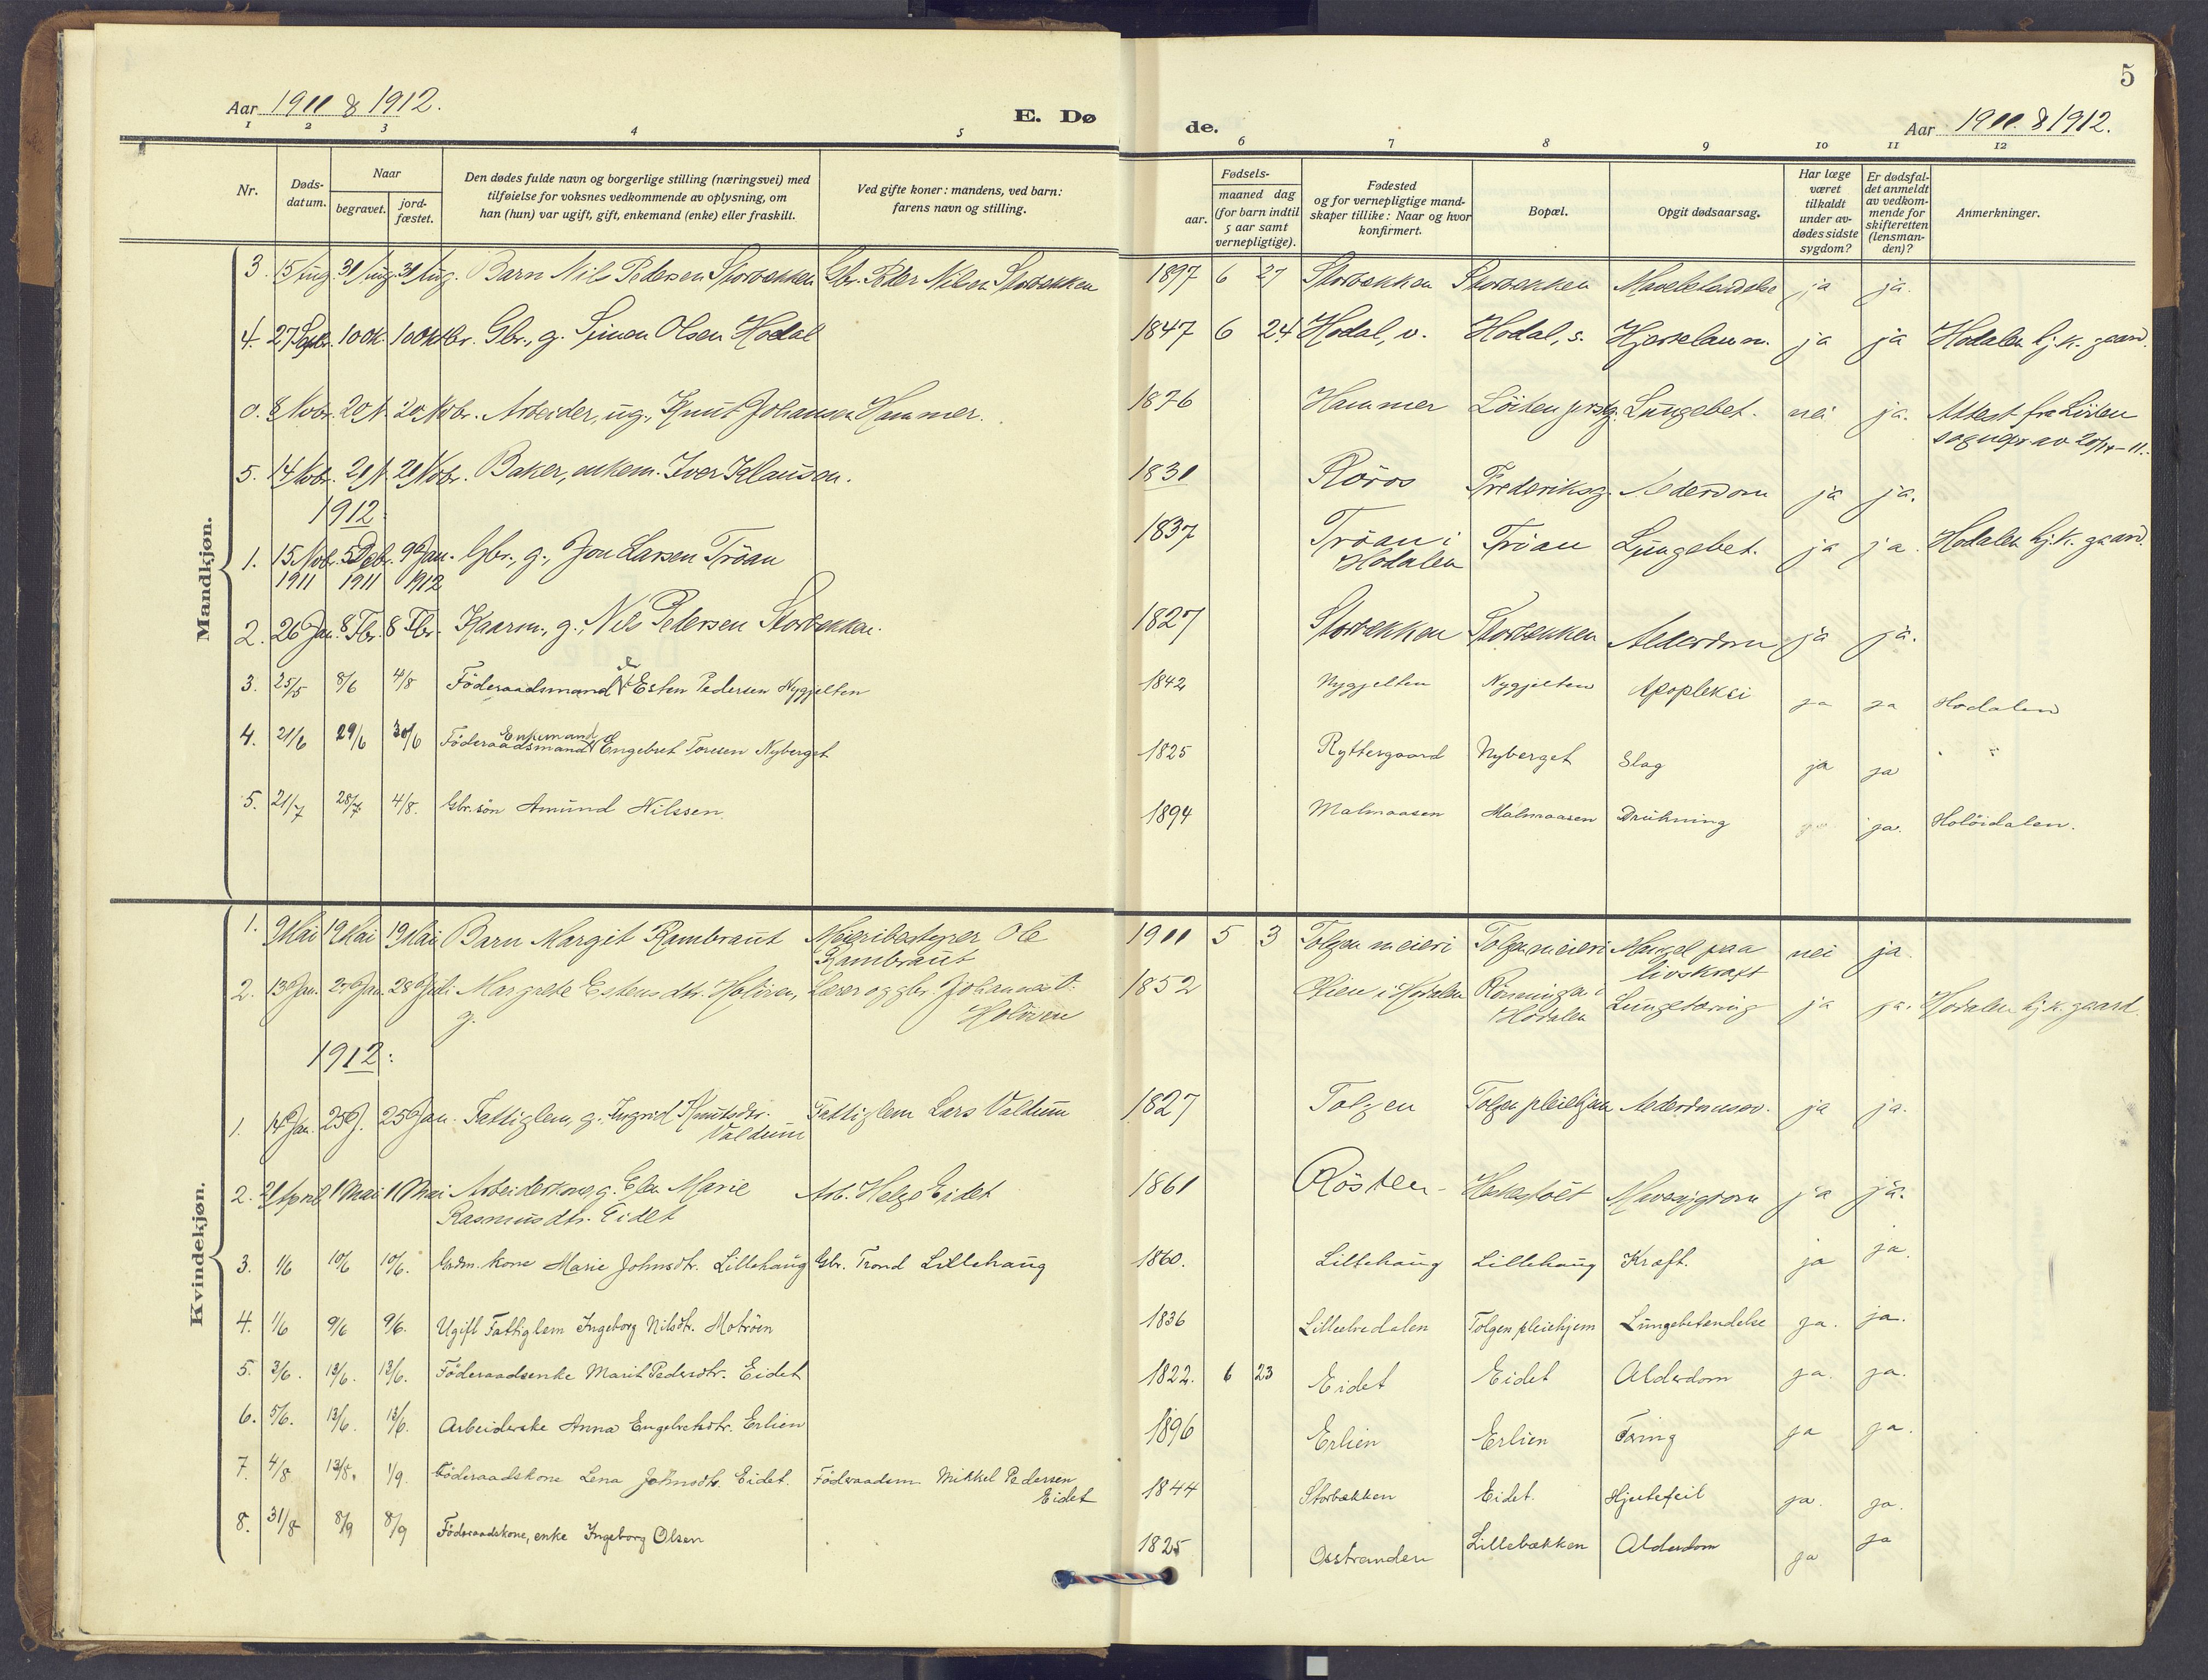 5
Aar 1911 & 1912.
E. Dø
de.
Aar 1911 & 1912.
1 2 3 4 5 6 7 8 9 10 11 12
Nr.
Døds-datum.
Naar
begravet.
jord-fæstet.
Den dødes fulde navn og borgerlige stilling (næringsvei) med
tilføielse for voksnes vedkommende av oplysning, om
han (hun) var ugift, gift, enkemand (enke) eller fraskilt.
Ved gifte koner: mandens, ved barn:
farens navn og stilling.
Fødsels-
aar.
maaned dag
(for barn indtil
5 aar samt
vernepligtige).
Fødested
og for vernepligtige mand-
skaper tillike: Naar og hvor
konfirmert.
Bopæl.
Opgit dødsaarsag.
Har læge
været
tilkaldt
under av-
dødes sidste
sygdom?
Er dødsfal-
det anmeldt
av vedkom-
mende for
skifteretten
(lensman-
den)?
Anmerkninger.
Mandkjøn.
3. 15 Aug. 31 Aug. 31 Aug. Barn Nils Pedersen Storbekken Gbr. Peder Nilsen Storbekken 1897 6 27 Storbekken Storbekken ja ja.
4. 27 Septr. 1 Ok. 1 Oktbr. Gbr., g. Simon Olsen Hodal 1847 6 24 Hodal, v. Hodal, s. Hjerselamm. ja ja Hodalen hj.k. gaard.
0. 8 Nobr. 20 N. 20 Nobr. Arbeider, ug., Knut Johansen Hammer. 1876 Hammer Löiten Lungebet. nei ja. Attest fra Löiten
sognepr av 20/11-11.
5. 14 Nobr. 21 N. 21 Nobr. Baker, enkem. Iver Klausen. 1831 Röros Frederiksg. Alderdom ja ja.
1912:
1. 15 Nobr. 5 Debr. 9 Jan. Gbr., g., Jon Larsen Tröan 1837 Tröan i Tröan Lungebet. ja ja. Hodalen hj.k. gaard.
1911 1911 1912 Hodalen
2. 26 Jan. 8 Fbr. 8 Fbr. Kaarm., g., Nils Pedersen Storbekken. 1827 Storbekken Storbekken Alderdom ja ja.
3. 25/5 8/6 4/8 Föderaadsmand Esten Pedersen Nygjelten 1842 Nygjelten Nygjelten Apopleksi ja ja Hodalen
Enkemand
4. 21/6 29/6 30/6 Föderaadsmand Engebret Toresen Nyberget 1825 Ryttergaard Nyberget Slag ja ja "
5. 21/7 28/7 4/8. Gbr. sön Amund Nilssen. 1894 Malmaasen Malmaasen Drukning ja. Holöidalen.
Kvindekjøn.
1. 9 Mai 19 Mai 19 Mai Barn Margit Rambraut Meieribestyrer Ole 1911 5 3 Tolgen meieri Tolgen meieri Mangel paa nei ja
Rambraut livskraft
2. 13 Jan. 27 Jan. 28 Juli Margrete Estensdtr. Holöien, Lærer og gbr. Johannes O. 1852 Lien i Hodalen Rönningen i Lungetæring ja ja. Hodalen hj.k. gaard.
g. Holöien Hodalen
1912:
1. 14 Jan. 25 J. 25 Jan. Fattiglem, g. Ingrid Knutsdtr. Fattiglem Lars Valdum 1827 Tolgen Tolgen pleiehjem ja ja.
Valdum
2. 21 April 1 Mai 1 Mai Arbeiderkone, g. Elen Marie Arb. Helge Eidet 1861 Rösten ja ja.
Rasmusdtr. Eidet
3. 1/6 10/6 10/6. Grdm. kone Marie Johnsdtr. Lillehaug Gbr. Trond Lillehaug 1860. Lillehaug Lillehaug Kræft. ja ja.
4. 1/6 9/6 9/6. Ugift Fattiglem Ingeborg Nilsdtr. Motröen 1836 Lilleelvedalen Tolgen pleiehjem Lungebetændelse ja. ja.
5. 3/6. 13/6. 13/6. Föderaadsenke Marit Pedersdtr. Eidet 1822. 6 23 Eidet Eidet Alderdom ja. ja.
6. 5/6. 13/6. 13/6. Arbeiderske Anna Engebretsdtr. Erlien 1896 Erlien Erlien Tæring ja ja.
7. 4/8 13/8. 1/9. Föderaadskone Lena Johnsdtr. Eidet. Föderaadsm Mikkel Pedersen 1844 Storbækken Eidet. Hjertefeil ja. ja.
Eidet
8. 31/8 8/9 8/9 Föderaadskone, enke Ingeborg Olsen 1825 Osstranden Lillebækken Alderdom ja ja